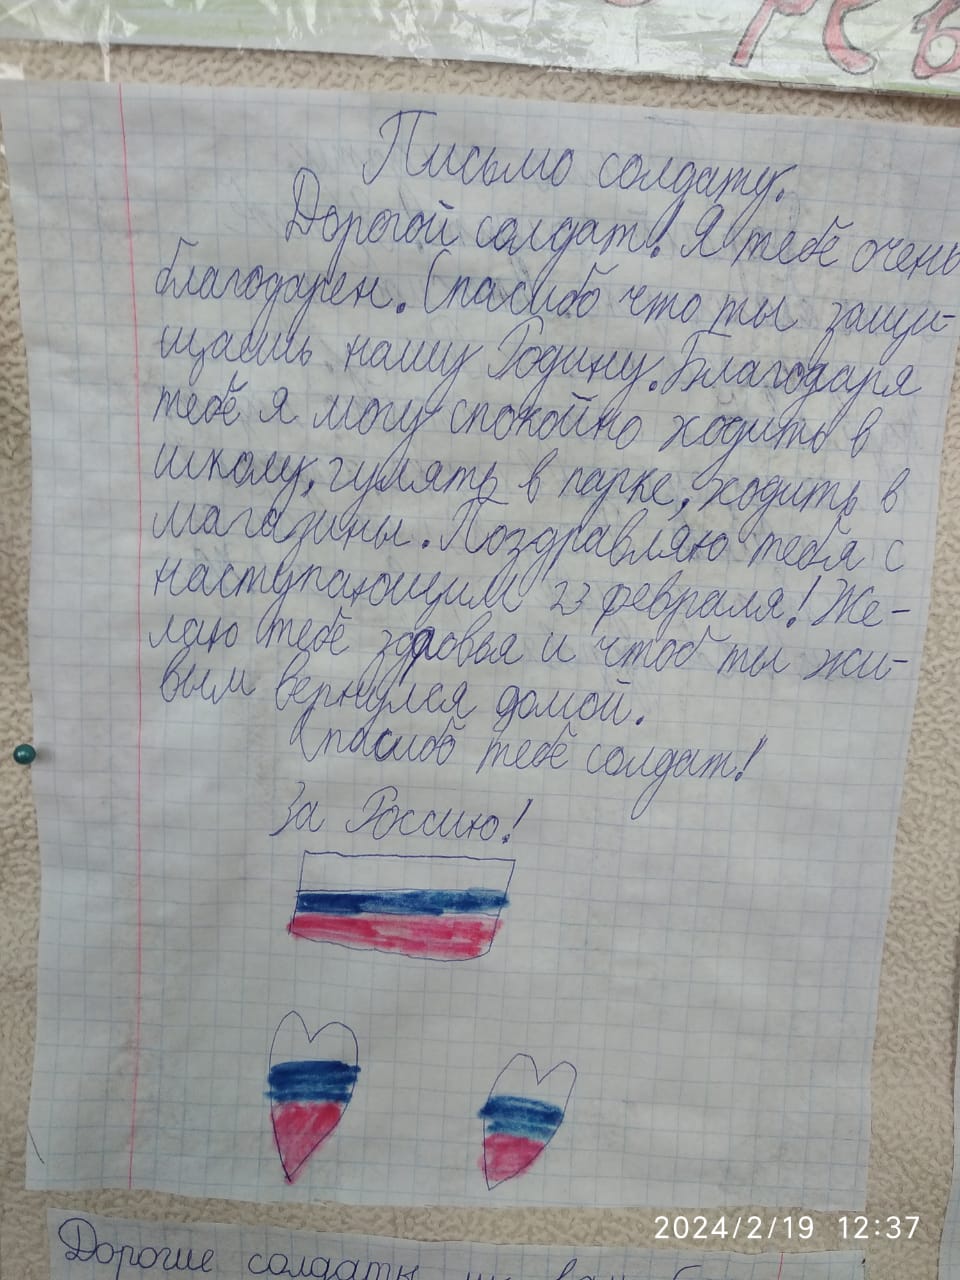 Письмо солдату.
Дорогой солдат! Я тебе очень
благодарен. Спасибо что ты защи-
щаешь нашу Родину. Благодаря
тебе я могу спокойно ходить в
школу, гулять в парке, ходить в
магазины. Поздравляю тебя с
наступающим 23 февраля! Же-
лаю тебе здоровья и чтоб ты жи-
вым вернулся домой.
Спасибо тебе солдат!
За Россию!
2024/2/19 12:37
Дорогие солдаты